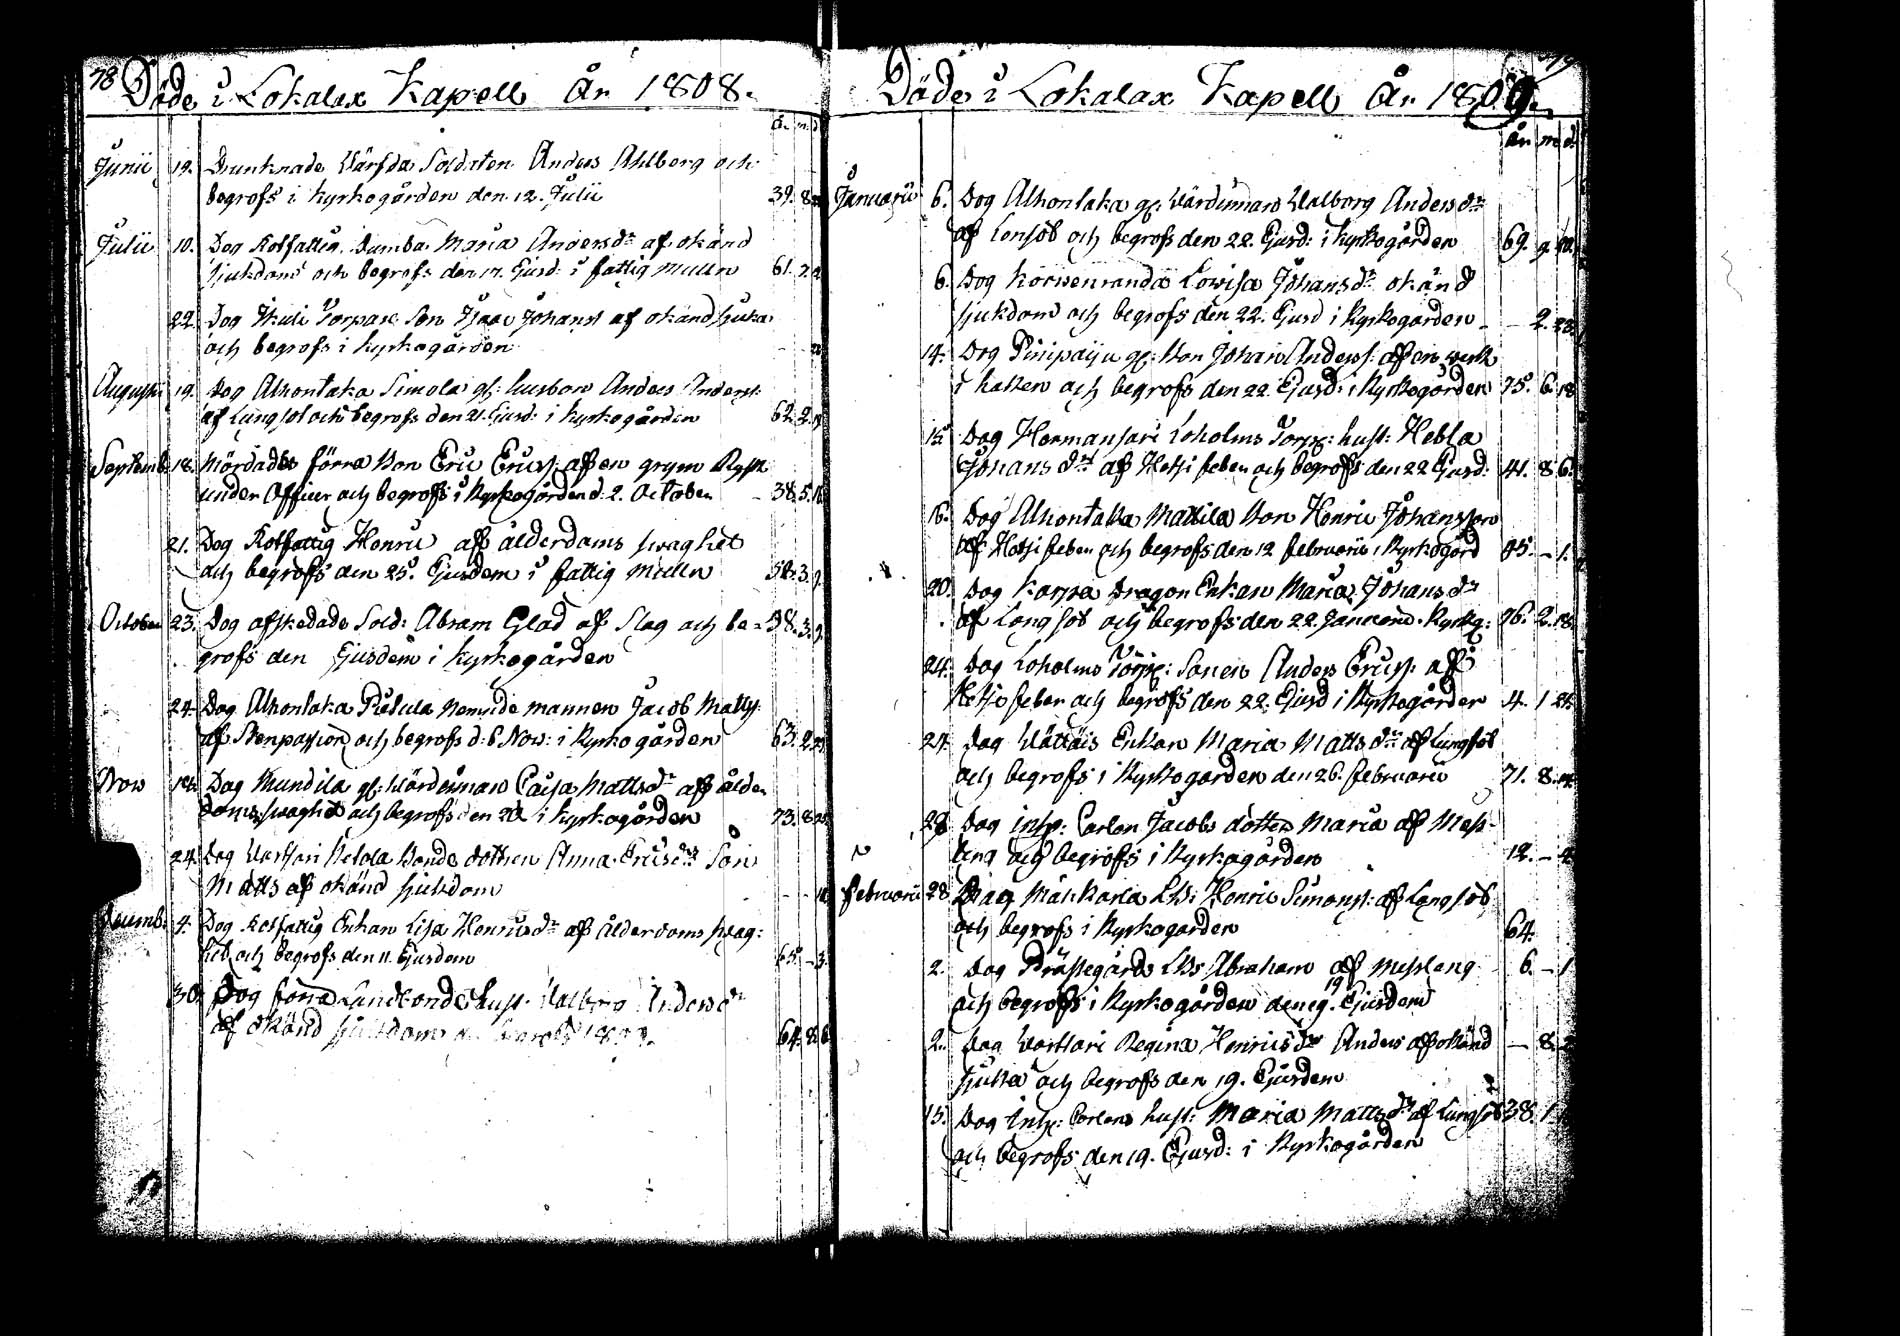 78 Döde i Lokalax Kapell År 1808.
å. m. d
Junii 19. Drunknade Värfda Soldaten Anders Ahlberg och
begrofs i kyrkogården den 12. Julii 39. 8
Julii 10. Dog Rotfattig Dumba Maria Andersdr af okänd
sjukdom och begrofs den 17. Ejusd. i fattig mullen 61. 2.
22. Dog Torpare Son Isaac Johanss af okänd sjuka
och begrofs i kyrkogården
Augusti 19. Dog Alhontaka Simola gl: husbon Anders Anderss:
af Lungsot och begrofs den 21. Ejusd: i kyrkogården 62. 2.
Septemb 18. Mördades förra Bon Eric Ericss: af en grym Rysk
under Officer och begrofs i Kyrkogården d. 2. October 38. 5.
21. Dog Rotfattig Henric af ålderdoms swaghet
och begrofs den 25. Ejusdem i fattig mullen 3.
October 23. Dog afskedade Sold: Abram Glad af Slag och be= 38. 3.
grofs den Ejusdem i kyrkogården
24. Dog Alhontaka Nemndemannen Jacob Matts:
af Stenpassion och begrofs d. 6 Nov: i Kyrkogården 63. 2.
Nov Dog Mundila gl: Värdinnan Caisa Mattsdr af ålder
doms swaghet och begrofs den 20 i kyrkogården 73. 8
24. Dog Wartsari Ketola Bonde dottren Anna Ericsdrs Son
Matts af okänd sjukdom
Decemb. 4. Dog Rotfattig Enkan Lisa Henricsdr af ålderdoms swag:
het och begrofs den 11. Ejusdem 65. – 3.
30. Dog förra hust: Walborg Andersdr
af okänd sjukdom 64. 8.
79
Döde i Lokalax Kapell År 1809.
år m d.
Januarii 6. Dog Alhontaka gl: Värdinnan Walborg Andersdr
af Lonsot och begrofs den 22. Ejusd: i kyrkogården 69. 9.
6. Dog Korwenranda Lowisa Johansdr okänd
sjukdom och begrofs den 22. Ejusd i Kyrkogården – 2. 23.
14. Dog Pinipaiju gl: Bon Johan Anderss: af en werk
i halsen och begrofs den 22. Ejusd: i Kyrkogården 75. 6. 18
15. Dog Hermansari Loholms Torp: hust: Hebla
Johansdr af Hetsi feber och begrofs den 22 Ejusd: 41. 8 6.
16. Dog Alhontaka Mattila Bon Henric Johansson
af Hetsi feber och begrofs den 12 februarii i Kyrkogård – 1.
20. Dog Karpa Dragon Enkan Maria Johansdr
af Lungsot och begrofs den 22 Kyrkg: 76. 2. 18.
24. Dog Loholms Torp: Sonen Anders Ericss: af
Hetsi feber och begrofs den 22. Ejusd i Kyrkogården 4. 1 24.
27. Dog Wättäis Enkan Maria Mattsdr af Lungsot
och begrofs i Kyrkogården den 26. februarii 71. 8.
28 Dog inh: Carlon Jacobs dotter Maria af Mess-
ling och begrofs i Kyrkogården 12. –
februarii 28 Dog Henric Simonss: af Lungsot
och begrofs i Kyrkogården 64.
2. Dog Prästegårds Abraham af messling 6. – 1
och begrofs i Kyrkogården den 19. Ejusdem
2. Dog Wartsari Regina Henricsdr Anders af okänd – 8.
sjuka och begrofs den 19. Ejusdem
15. Dog inh: Carlons hust: Maria Mattsdr af Lungsot 38. 1.
och begrofs den 19. Ejusd: i Kyrkogården